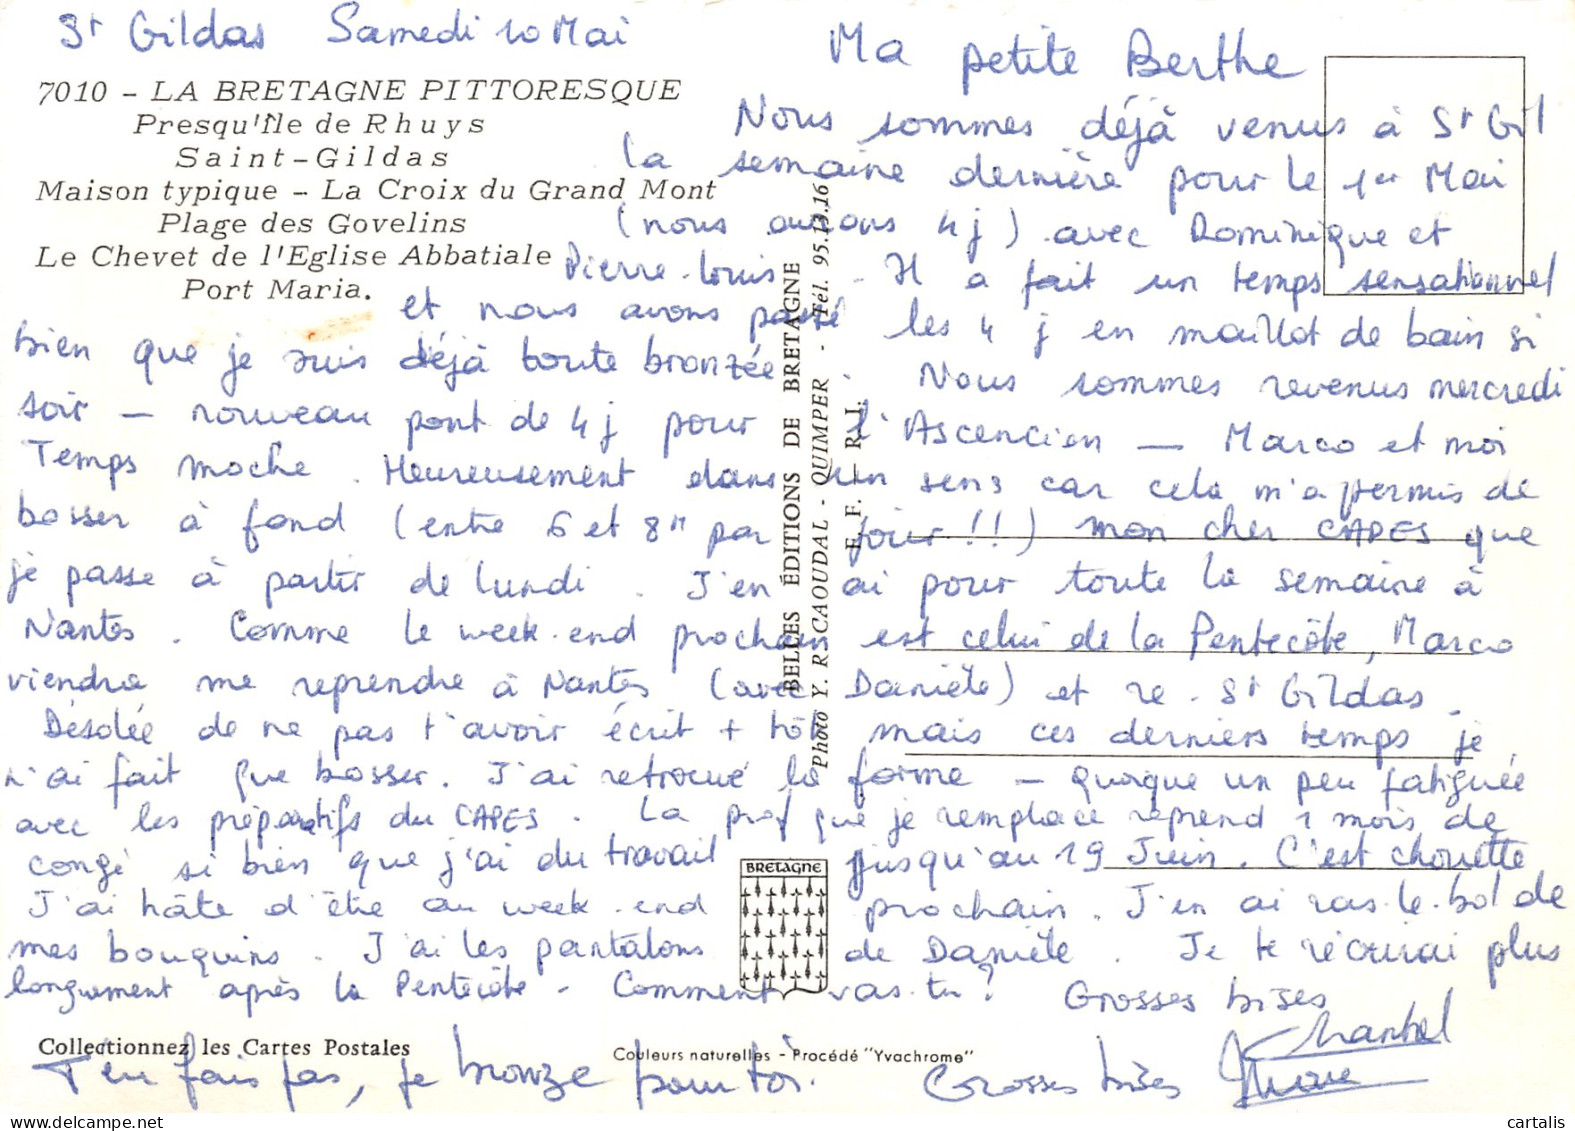 St Gildas Samedi 10 Mai
7010 - LA BRETAGNE PITTORESQUE
Presqu'Île de Rhuys
Saint-Gildas
Maison typique - La Croix du Grand Mont
Plage des Govelins
Le Chevet de l'Eglise Abbatiale
Port Maria.
Ma petite Berthe
Nous sommes déjà venus à St Gil
la semaine dernière pour le 1er Mai
(nous avons 4 j) avec Dominique et
Pierre-Louis. Il a fait un temps sensationnel
et nous avons passé les 4 j en maillot de bain si
bien que je suis déjà toute bronzée. Nous sommes revenus mercredi
soir - nouveau pont de 4 j pour l'Ascencion - Marco et moi
Temps moche. Heureusement dans un sens car cela m'a permis de
bosser à fond (entre 6 et 8h par jour!!) mon cher CAPES que
je passe à partir de lundi. J'en ai pour toute la semaine à
Nantes. Comme le week-end prochain est celui de la Pentecôte, Marco
viendra me reprendre à Nantes (avec Danièle) et re-St Gildas.
Désolée de ne pas t'avoir écrit + tôt mais ces derniers temps je
n'ai fait que bosser. J'ai retrouvé la forme - quoique un peu fatiguée
avec les préparatifs du CAPES. La prof que je remplace reprend 1 mois de
congé si bien que j'ai du travail jusqu'au 19 Juin. C'est chouette
J'ai hâte d'être au week-end prochain. J'en ai ras-le-bol de
mes bouquins. J'ai les pantalons de Danièle. Je te récrirai plus
longuement après la Pentecôte - Comment vas-tu? Grosses bises
Chantal
T'en fais pas, je bronze pour toi. Grosses bises
BELLES ÉDITIONS DE BRETAGNE
Photo Y. R. CAOUDAL - QUIMPER - Tél. 95.13.16
E. F. - R. J.
BRETAGNE
Collectionnez les Cartes Postales
Couleurs naturelles - Procédé "Yvachrome"
cartalis